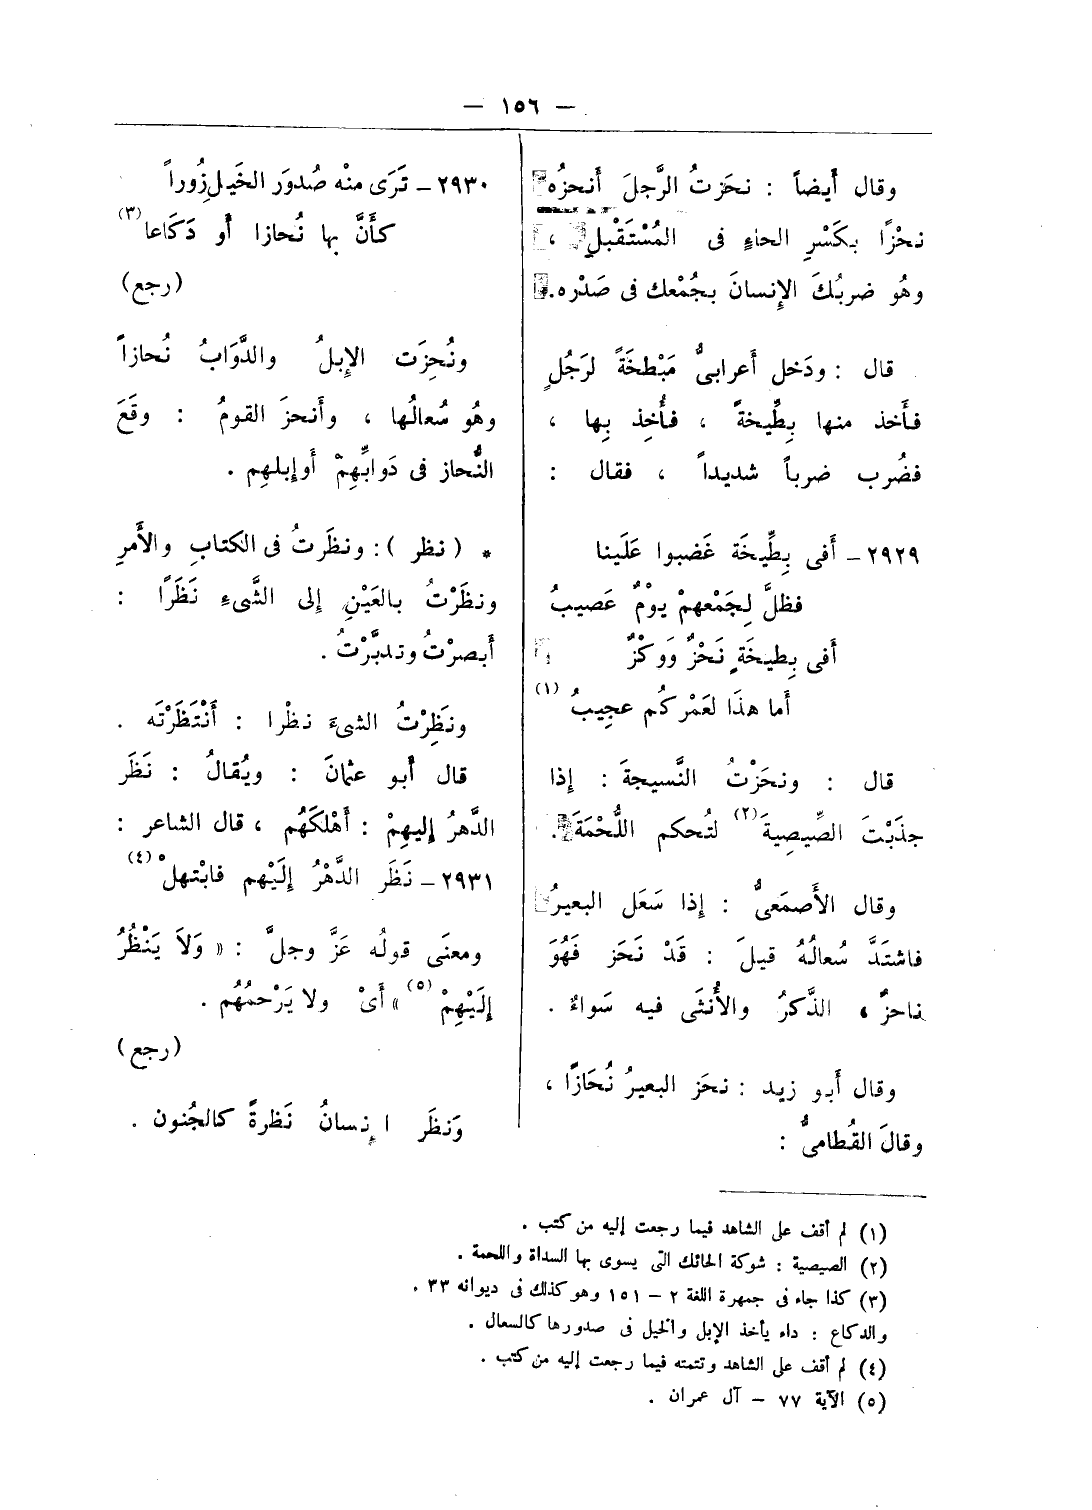 — ١٥٦ —
وقال أَيضاً : نحَزتُ الرَّجلَ أَنحزُه
نحْزًا بكَسْرِ الحاءِ فى المُسْتَقْبلِ ،
وهُو ضربُكَ الإنسانَ بجُمْعك فى صَدْره.
قال : ودَخل أَعرابىٌّ مَبْطخَةً لرَجُلٍ
فأَخذ منها بِطِّيخةً ، فأُخِذ بِها ،
فضُرب ضرباً شديداً ، فقال :
٢٩٢٩ – أَفى بِطِّيخَة غَضبوا عَلَينا
فظلَّ لِجَمْعهمْ يوْمٌ عَصيبُ
أَفى بِطيخَةٍ نَحْزٌ ووكْزٌ
أَما هذَا لعَمْركُم عجِيبُ (١)
قال : ونحَزْتُ النَّسيجةَ : إذا
جذَبْتَ الصِّيصِيةَ (٢) لتُحكم اللُّحْمَةَ .
وقال الأَصمَعىُّ : إذا سَعَل البعيرُ
فاشتَدَّ سُعالُهُ قيلَ : قَدْ نَحَز فَهُوَ
ناحزٌ ، الذَّكرُ والأُنثَى فيه سَواءٌ .
وقال أَبو زيد : نحَز البعيرُ نُحَازًا ،
وقالَ القُطامىُّ :
٢٩٣٠ – تَرَى منْه صُدورَ الخَيلِ زُوراً
كأَنَّ بها نُحازا أَو دَكَاعا (٣)
(رجع)
ونُحِزَت الإِبلُ والدَّوَابُ نُحازاً
وهُو سُعالُها ، وأَنحزَ القومُ : وقَعَ
النُّحاز فى دَوابِّهِمْ أَوإبلهِم .
* ( نظر ) : ونظَرتُ فى الكتابِ والأَمرِ
ونظَرْتُ بالعَيْنِ إلى الشَّىءِ نَظَرًا :
أَبصرْتُ وتدبَّرْتُ .
ونَظِرْتُ الشىءَ نظْرا : أَنْتَظَرْتَه .
قال أَبو عثمانَ : ويُقالُ : نَظَر
الدَّهرُ إليهِمْ : أَهْلكَهُم ، قال الشاعر :
٢٩٣١ – نَظَر الدَّهْرُ إلَيْهم فابْتهلْ (٤)
ومعنَى قولُه عَزَّ وجلَّ : « وَلاَ يَنْظُرُ
إلَيْهِمْ (٥) » أَىْ ولا يَرْحمُهُم .
(رجع)
وَنظَر اإنسانُ نَظرةً كالجُنون .
(١) لم أقف على الشاهد فيما رجعت إليه من كتب .
(٢) الصيصية : شوكة الحائك التى يسوى بها السداة واللحمة .
(٣) كذا جاء فى جمهرة اللغة ٢ – ١٥١ وهو كذلك فى ديوانه ٣٣ .
والدكاع : داء يأخذ الإبل والخيل فى صدورها كالسعال .
(٤) لم أقف على الشاهد وتتمته فيما رجعت إليه من كتب .
(٥) الآية ٧٧ – آل عمران .